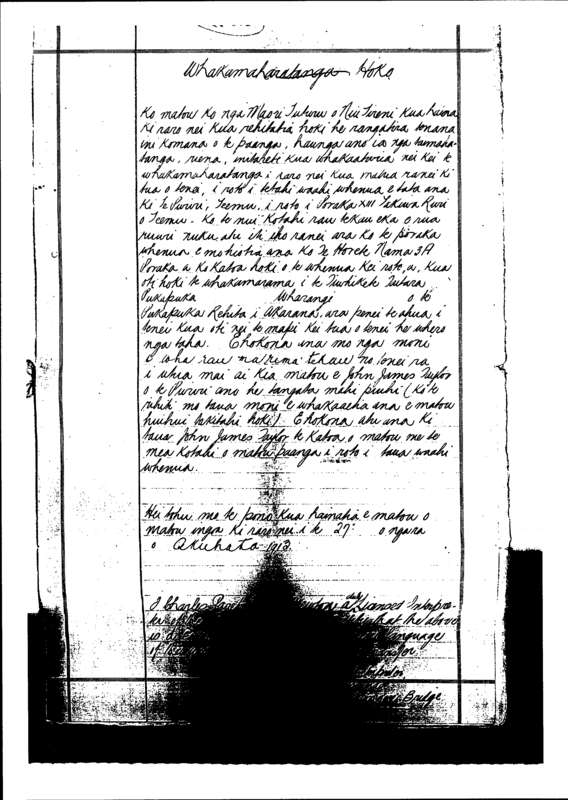 Whakamaharatanga Hoko
Ko matou ko nga Maori Tuturu o Niu Tireni kua haina
ki raro nei kua rehitatia hoki he rangatira tenana
ini Komana o te paanga, haunga ano ia nga taimaha-
tanga, riena, initareti kua whakaaturia nei kei te
whakamaharatanga i raro nei kua mahia ranei ki
tua o tenei, i roto i tetahi waahi whenua e tata ana
ki te Puriri, Teemu, i roto i Poraka XIII Takiwa Ruri
o Teemu. Ko te nui Kotahi rau tekau eka e rua
ruuri nuku atu iti iho ranei ara ko te poraka
whenua e mohiotia ana ko Te Horete Nama 3A
Poraka a ko Katoa hoki o te whenua kei roto, a, kua
oti hoki te whakamarama i te Tiwhikete Tuturu
Pukapuka Wharangi o te
Pukapuka Rehita i Akarana, ara penei te ahua i
tenei kua oti nei te mapi kei tua o tenei he whero
nga taha. E hokona ana mo nga moni
e wha rau ma rima tekau no tenei ra
i utua mai ai kia matou e John James Taylor
o te Puriri ano he tangata mahi piuhi (Ko te
rihiti mo taua moni e whakaaetia ana e matou
huihui takitahi hoki) E hokona atu ana ki
taua John James Taylor te Katoa o matou me te
mea Kotahi o matou paanga i roto i taua waahi
whenua.
Hei tohu mo te pono kua hainatia e matou o
matou ingoa ki raro nei i te 27: o ngara
o Akuhata 1913.
I Charles a Licensed Interpre-
that the above
language
of
Bridge